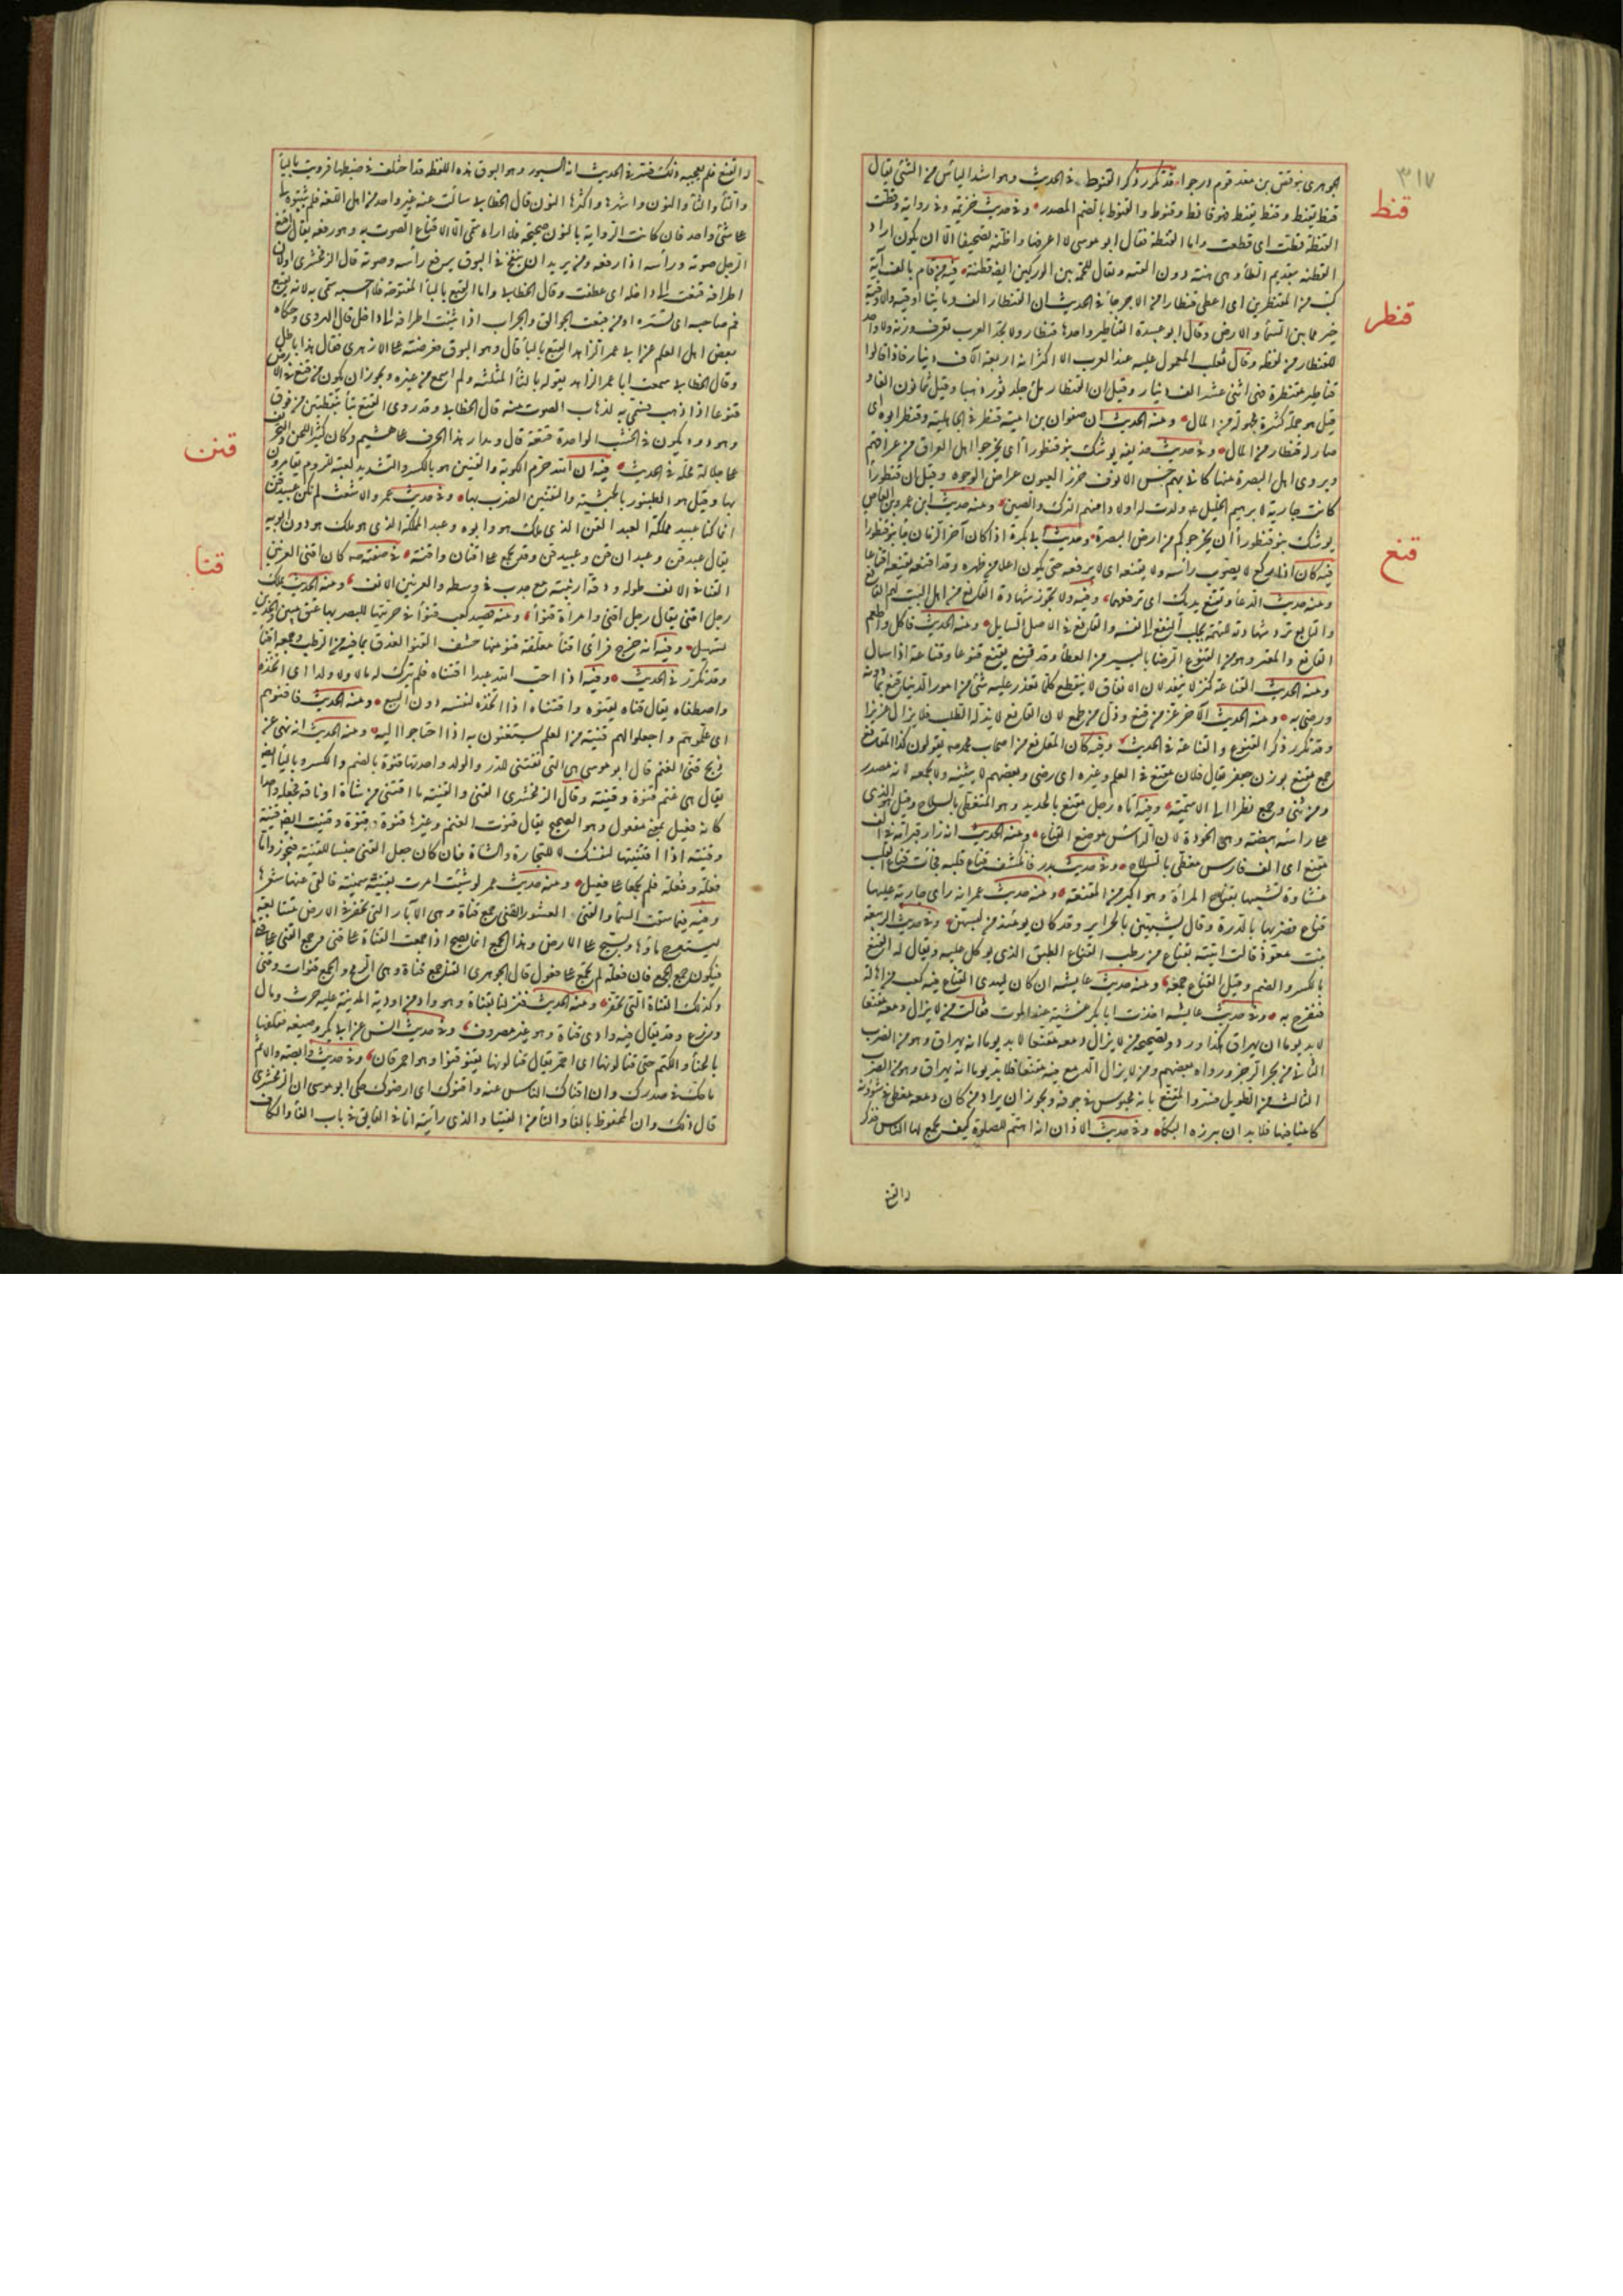 ٣١٧
الجوهري بنو قنص بن معد قوم درجوا قد تكرر ذكر القنوط في الحديث وهو اشد اليأس من الشئ يقال
قنط
قنط يقنط وقنط يقنط فهو قانط وقنوط والقنوط بالضم المصدر وفي حديث خزيمة في رواية وقطت
القنطة قطت اى قطعت واما القنطة فقال ابو موسى لا اعرفها واظنه تصحيفا الا ان يكون اراد
القطنة بتقديم الطاء وهى هنة دون القبة ويقال للحمة بين الوركين ايضا قطنة فيه من قام بالف آية
كتب من المقنطرين اى اعطى قنطارا من الاجر جاء في الحديث ان القنطار الف ومائتا اوقية والاوقية
قنطر
خير مما بين السماء والارض وقال ابو عبيدة القناطير واحدها قنطار ولا تجد العرب تعرف وزنه ولا واحد
للقنطار من لفظه وقال ثعلب المعمول عليه عند العرب الاكثر انه اربعة آلاف دينار فاذا قالوا
قناطير مقنطرة فهى اثنى عشر الف دينار وقيل ان القنطار ملئ جلد ثور ذهبا وقيل ثمانون الفا و
قيل هو جملة كثيرة مجهولة من المال ومنه الحديث ان صفوان بن امية قنطر في الجاهلية وقنطر ابوه اى
صار له قنطار من المال وفي حديث حذيفة يوشك بنو قنطوراء اى يخرجوا اهل العراق من عراقهم
ويروى اهل البصرة منها كانى بهم خنس الانوف خزر العيون عراض الوجوه وقيل ان قنطوراء
كانت جارية لابراهيم الخليل ولدت له اولادا منهم الترك والصين ومنه حديث ابن عمرو بن العاص
يوشك بنو قنطوراء ان يخرجوكم من ارض البصرة وحديث ابى بكرة اذا كان آخر الزمان جاء بنو قنطورا
قنع
فيه كان اذا ركع لا يصوب رأسه ولا يقنعه اى لا يرفعه حتى يكون اعلى من ظهره وقد اقنعه يقنعه اقناعا
ومنه حديث الدعاء وتقنع يديك اى ترفعهما وفيه ولا تجوز شهادة القانع من اهل البيت لهم القانع
والتابع ترد شهادته للتهمة بجلب النفع الى نفسه والقانع في الاصل السايل ومنه الحديث فاكل واطعم
القانع والمعتر وهو من القنوع الرضا باليسير من العطاء وقد قنع يقنع قنوعا وقناعة اذا سأل
ومنه الحديث القناعة كنز لا ينفد لان الانفاق لا ينقطع كلما تعذر عليه شئ من امور الدنيا قنع بما دونه
ورضى به ومنه الحديث الآخر عز من قنع وذل من طمع لان القانع لا يذله الطلب فلا يزال عزيزا
وقد تكرر ذكر القنوع والقناعة في الحديث وفيه كان المقانع من اصحاب محمد يقولون كذا المقانع
جمع مقنع بوزن جعفر يقال فلان مقنع في العلم وغيره اى رضى وبعضهم لا يثنيه ولا يجمعه لانه مصدر
ومن ثنى وجمع نظر الى الاسمية وفيه اتاه رجل مقنع بالحديد وهو المتغطى بالسلاح وقيل هو الذى
على رأسه بيضة وهى الخوذة لان الرأس موضع القناع ومنه الحديث انه زار قبر امه في الف
مقنع اى الف فارس مغطى بالسلاح وفي حديث بدر فانكشف قناع قلبه فمات قناع القلب
غشاؤه تشبيها بقناع المرأة وهو اكبر من المقنعة ومنه حديث عمر انه رأى جارية عليها
قناع فضربها بالدرة وقال تشبهين بالحراير وقد كان يومئذ من لبسهن وفي حديث الربيع
بنت معوذ قالت اتيته بقناع من رطب القناع الطبق الذى يوكل عليه ويقال له القنع
بالكسر والضم وقيل القناع جمعه ومنه حديث عايشة ان كان ليهدى لنا القناع فيه كعب من اهالة
فنفرح به وفي حديث عايشة اخذت ابا بكر غشية عند الموت فقالت من لا يزال دمعه مقنعا
لا بد يوما ان يهراق هكذا ورد وتصحيحه من لا يزال دمعه مقنعا لا بد يوما انه يهراق وهو من الضرب
الثانى من بحر الرجز ورواه بعضهم ومن لا يزال الدمع فيه مقنعا فلا بد يوما انه يهراق وهو من الضرب
الثالث من الطويل فسروا المقنع بانه محبوس في جوفه ويجوز ان يراد من كان دمعه مغطى في شؤونه
كامنا فيها فلا بد ان يبرزه البكاء وفي حديث الاذان انه اهتم للصلوة كيف يجمع لها الناس فذكر
له القنع
له القنع فلم يعجبه ذلك فسر في الحديث انه الشبور وهو البوق هذه اللفظة قد اختلف في ضبطها فرويت بالباء
والتاء والثاء والنون واشهرها واكثرها النون قال الخطابى سألت عنه غير واحد من اهل اللغة فلم يثبتوه لى
على شئ واحد فان كانت الرواية بالنون صحيحة فلا اراه سمى الا لاقناع الصوت به وهو رفعه يقال اقنع
الرجل صوته ورأسه اذا رفعه ومن يريد ان ينفخ في البوق يرفع رأسه وصوته قال الزمخشرى اولان
اطرافه قنعت الى داخله اى عطفت وقال الخطابى واما القبع بالباء المفتوحة فلا احسبه سمى به الا لانه يقبع
فم صاحبه اى يستره او من قبعت الجوالق والجراب اذا ثنيت اطرافه الى داخل قال الهروى وحكاه
بعض اهل العلم عن ابى عمر الزاهد القبع بالباء قال وهو البوق فعرضته على الازهرى فقال هذا باطل
وقال الخطابى سمعت ابا عمر الزاهد يقوله بالثاء المثلثة ولم اسمع من غيره ويجوز ان يكون من قثع في الارض
قثوعا اذا ذهب فسمى به لذهاب الصوت منه قال الخطابى وقد روى القتع بتاء بنقطتين من فوق
وهو دود يكون في الخشب الواحدة قتعة قال ومدار هذا الحرف على هشيم وكان كثير اللحن والتحريف
قنن
على جلالة محله في الحديث فيه ان الله حرم الكوبة والقنين هو بالكسر والتشديد لعبة للروم يقامرون
بها وقيل هو الطنبور بالحبشية والتقنين الضرب بها وفي حديث عمر والاشعث لم نكن عبيد قن
انما كنا عبيد مملكة العبد القن الذى ملك هو وابوه وعبد المملكة الذى هو ملك هو دون ابويه
يقال عبد قن وعبدان قن وعبيد قن وقد يجمع على اقنان واقنة في صفته صه كان اقنى العرنين
قنا
القنا في الانف طوله ودقة ارنبته مع حدب في وسطه والعرنين الانف ومنه الحديث يملك
رجل اقنى يقال رجل اقنى وامراة قنواء ومنه قصيد كعب قنواء في حرتيها للبصير بها عتق مبين وفي الخدين
تسهيل وفيه انه خرج فراى اقناء معلقة قنو منها حشف القنو العذق بما فيه من الرطب وجمعه اقناء
وقد تكرر في الحديث وفيه اذا احب الله عبدا اقتناه فلم يترك له مالا ولا ولدا اى اتخذه
واصطفاه يقال قناه يقنوه واقتناه اذا اتخذه لنفسه دون البيع ومنه الحديث فاقنوهم
اى علموهم واجعلوا لهم قنية من العلم يستغنون به اذا احتاجوا اليه ومنه الحديث انه نهى عن
ذبح قنى الغنم قال ابو موسى هى التى تقتنى للدر والولد واحدتها قنوة بالضم والكسر وبالياء ايضا
يقال هى غنم قنوة وقنية وقال الزمخشرى القنى والقنية ما اقتنى من شاة او ناقة فجعله واحدا
كانه فعيل بمعنى مفعول وهو الصحيح يقال قنوت الغنم وغيرها قنوة وقنوة وقنيت ايضا قنية
وقنية اذا اقتنيتها لنفسك لا للتجارة والشاة فان كان جعل القنى جنسا للقنية فيجوز واما
فعلة وفعلة فلم يجمعا على فعيل ومنه حديث عمر لو شئت امرت بقنية سمينة فالقى عنها شعرها
وفيه فيما سقت السماء والقنى العشور القنى جمع قناة وهى الآبار التى تحفر في الارض متتابعة
ليستخرج ماؤها ويسيح على الارض وهذا الجمع انما يصح اذا جمعت القناة على قنى وجمع القنى على قنى
فيكون جمع الجمع فان فعلة لم تجمع على فعول قال الجوهرى القنا جمع قناة وهى الرمح والجمع قنوات وقنى
وكذلك القناة التى تحفر ومنه الحديث فنزلنا بقناة وهو واد من اودية المدينة عليه حرث ومال
وزرع وقد يقال فيه وادى قناة وهو غير مصروف وفي حديث انس عن ابى بكر وصبغه فغلفها
بالحناء والكتم حتى قنا لونها اى احمر يقال قنا لونها يقنو قنوا وهو احمر قان وفي حديث وابصة والاثم
ما حك في صدرك وان اقناك الناس عنه واقنوك اى ارضوك حكى ابو موسى ان الزمخشرى
قال ذلك وان المحفوظ بالفاء والتاء من الفتيا والذى رأيته انا في الفايق في باب الفاء والكاف